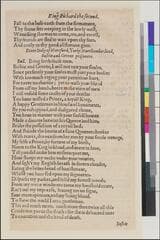 King Richard the second.
Fall to the base earth from the firmament,
Thy sunne sets weeping in the lowly west,
Witnessing stormes to come, wo, and vnrest,
Thy friends are fled to wait vpon thy foes,
And crosly to thy good all fortune goes.
Enter Duke of Hereford, Yorke, Northumberland,
Bushie and Greene prisoners.
Bull. Bring forth these men,
Bushie and Greene, I will not vex your soules,
Since presently your soules must part your bodies
With too much vrging your pernitious liues,
For twere no charitie; yet to wash your bloud
From off my hands, heere in the view of men,
I will vnfold some causes of your deaths:
You haue misled a Prince, a royall King,
A happy Gentleman in bloud and lineaments,
By you vnhappied, and disfigured cleane,
You haue in manner with your sinfull houres
Made a diuorce betwixt his Queene and him,
Broke the possession of a royall bed,
And stainde the beutie of a faire Queenes cheekes
With teares, drawen from her eies by your foule wrongs,
My selfe a Prince by fortune of my birth,
Neere to the King in bloud, and neere in loue,
Till you did make him misinterpret me,
Haue stoopt my necke vnder your iniuries,
And sigh't my English breath in forren cloudes,
Eating the bitter bread of banishment,
Whilst you haue fed vpon my segniories,
Disparkt my parkes, and felld my forrest woods,
From my owne windowes torne my houshold coate,
Rac't out my impreese, leauing me no signe,
Saue mens opinions, and my liuing bloud,
To shew the world I am a gentleman.
This and much more, much more then twise all this
Condemns you to the death: see them deliuered ouer
To execution and the hand of death.
Bushie